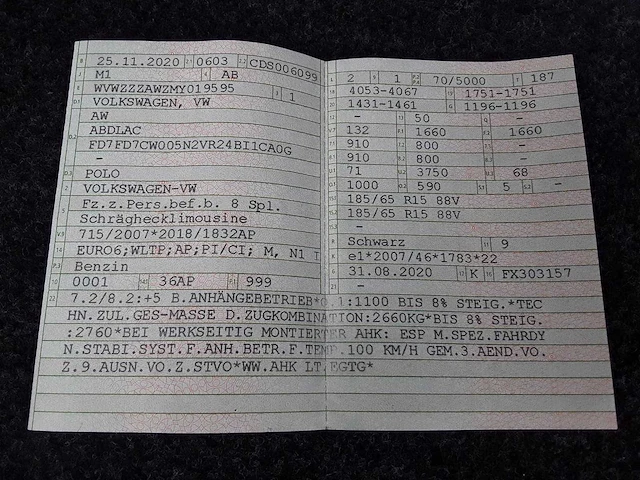 B 25.11.2020 2.1 0603 2.2 CDS006099
J M1 4 AB
E WVWZZZAWZMY019595 3 1
D.1 VOLKSWAGEN, VW
AW
D.2 ABDLAC
FD7FD7CW005N2VR24BI1CA0G
-
D.3 POLO
2 VOLKSWAGEN-VW
5 Fz.z.Pers.bef.b. 8 Spl.
Schräghecklimousine
V.9 715/2007*2018/1832AP
14 EURO6;WLTP;AP;PI/CI; M, N1 I
P.3 Benzin
10 0001 14.1 36AP P.1 999
L 2 9 1 P.2 P.4 70/5000 T 187
18 4053-4067 19 1751-1751
20 1431-1461 G 1196-1196
12 - 13 50 Q -
V.7 132 F.1 1660 F.2 1660
7.1 910 7.2 800 7.3 -
8.1 910 8.2 800 8.3 -
U.1 71 U.2 3750 U.3 68
O.1 1000 O.2 590 S.1 5 S.2 -
15.1 185/65 R15 88V
15.2 185/65 R15 88V
15.3 -
R Schwarz 11 9
K e1*2007/46*1783*22
6 31.08.2020 17 K 16 FX303157
21 -
22 7.2/8.2:+5 B.ANHÄNGEBETRIEB*O.1:1100 BIS 8% STEIG.*TEC
HN.ZUL.GES-MASSE D.ZUGKOMBINATION:2660KG*BIS 8% STEIG.
:2760*BEI WERKSEITIG MONTIERTER AHK: ESP M.SPEZ.FAHRDY
N.STABI.SYST.F.ANH.BETR.F.TEMP.100 KM/H GEM.3.AEND.VO.
Z.9.AUSN.VO.Z.STVO*WW.AHK LT.EGTG*